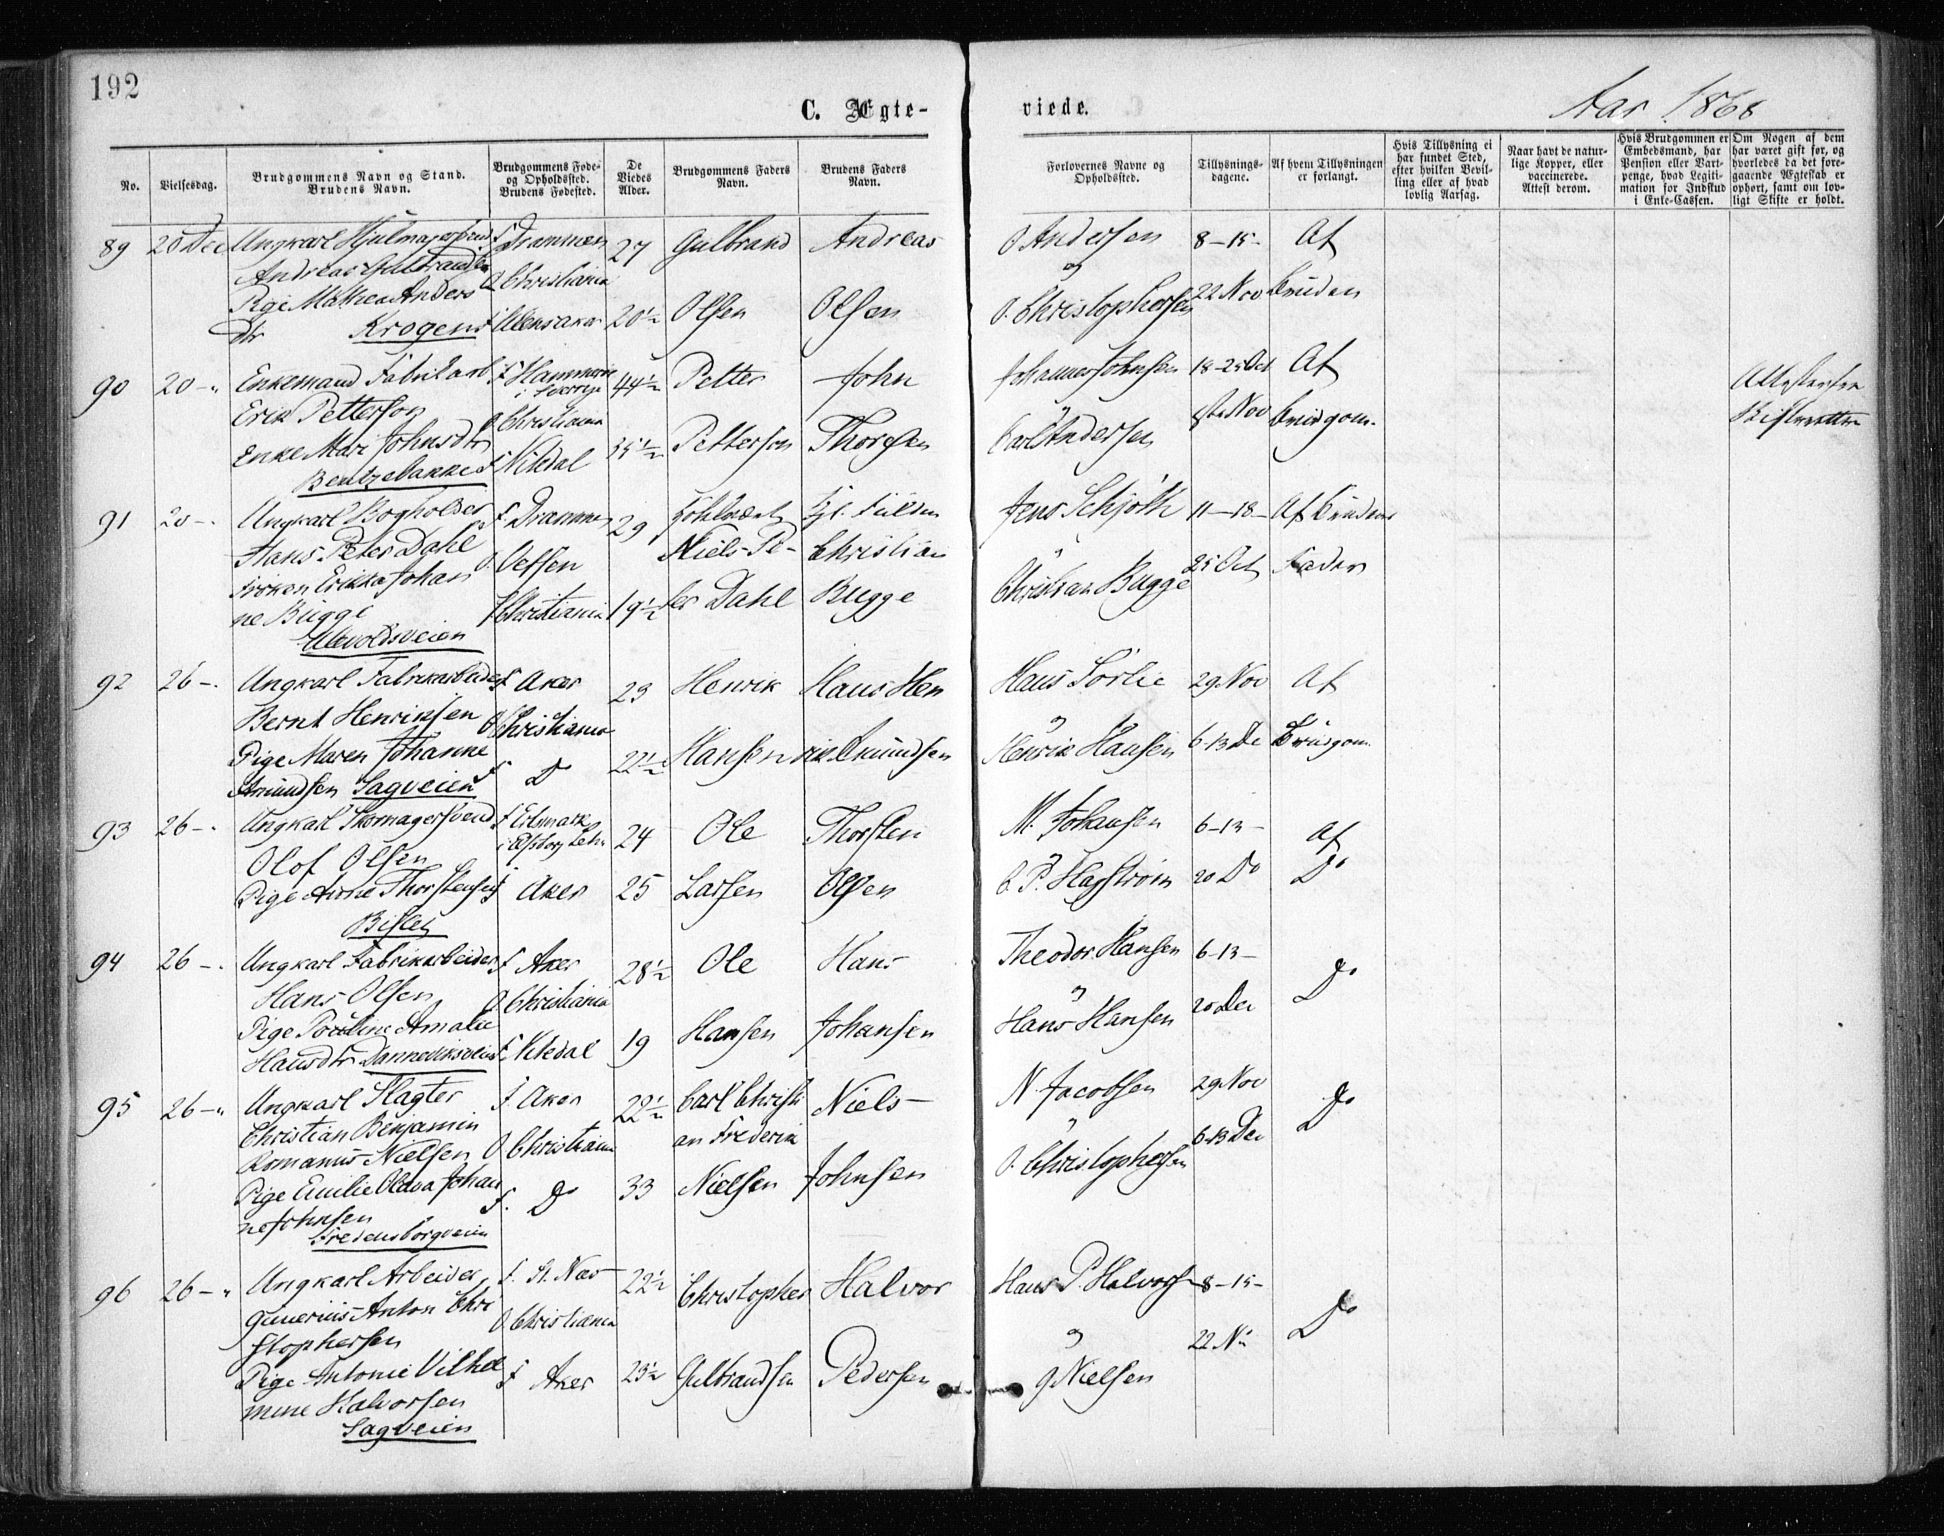 192
C. Ægte-
viede.
Aar 1868
No.
Vielsesdag.
Brudgommens Navn og Stand.
Brudens Navn.
Brudgommens Føde-
og Opholdssted.
Brudens Fødested.
De
Viedes
Alder.
Brudgommens Faders
Navn.
Brudens Faders
Navn.
Forlovernes Navne og
Opholdssted.
Tillysnings-
dagene.
Af hvem Tillysningen
er forlangt.
Hvis Tillysning ei
har fundet Sted,
efter hvilken Bevil-
ling eller af hvad
lovlig Aarsag.
Naar havt de natur-
lige Kopper, eller
vaccinerede.
Attest derom.
Hvis Brudgommen er
Embedsmand, har
Pension eller Vart-
penge, hvad Legiti-
mation for Indskud
i Enke-Cassen.
Om Nogen af dem
har været gift før, og
hvorledes da det fore-
gaaende Ægteskab er
ophørt, samt om lov-
ligt Skifte er holdt.
89 20 Dec Ungkarl Hjulmagersvend f Drammen 27 Gulbrand Andreas O Andersen 8-15- Af
Andreas Gulbrandsen O Christiania og
Pige Mathea Anders O. Christophersen 22 Nov bruden
dtr Krogen f Ullensaker 20½ Olsen Olsen
90 20-" Enkemand Fabrikarb f Hammerö 44½ Petter John Johannes Johnsen 18-25 Oct Af
i Sverrige
Erik Petterson O Christiania 1ste Nov brudgom.
Enke Mari Johnsdtr f Nitedal 35½ Petterson Thorsen Carl Andersen
Bentzebakken
91 20-. Ungkarl Bogholder f. Drammen 29 Jens Schjöth 11-18- Af brudens
Hans Peter Dahl O Vestfen Niels Pe- Christian 25 Oct Fader
Fröken Erikka Johan Christian Bugge
ne Bugge f Christiania 19½ ter Dahl Bugge
Ullevoldsveien
92 26-. Ungkarl Fabrikarbeider f Aker 23 Henrik Hans Hen Hans Sörlie 29 Nov Af
Bernt Henriksen O Christiania "
Pige Maren Johanne f Do 22½ Hansen rik Amundsen Henrik Hansen 6-13 De Brudgom.
Amundsen Sagveien
93 26-. Ungkarl Skomagersvend f Edsmark 24 Ole Thorsten M. Johansen 6-13- Af
i Elfsborg Lehn
Olof Olsen "
Pige Anne Thorstensen f Aker 25 Larsen Olsen C. P. Hagström 20 Do Do
Bislet
94 26-. Ungkarl Fabrikarbeider f Aker 28½ Ole Hans Theodor Hansen 6-13- Do
Hans Olsen O Christiania "
Pige Pauline Amalie Hans Hansen 20 Dec
Hansdtr Dannevirksveien f. Nitedal 19 Hansen Johansen
95 26-" Ungkarl Slagter f. Aker 22½ Carl Christi Niels N. Jacobsen 29 Nov Do
Christian Benjamin an Frederik "
Romanus Nielsen O Christiania 6-13 Dec
Pige Emilie Olava Johan f. Do 33 Nielsen Johnsen O. Christophersen
ne Johnsen
Fredensborgveien
96 26-" Ungkarl Arbeider f. St. Næs 22½ Christopher Halvor Hans P. Halvorsen 8-15- Do
Gunerius Anton Chri O Christiania "
stophersen 22 No
Pige Antonie Vilhel f Aker 23½ Gulbrandsen Pedersen G Nielsen
mine Halvorsen
Sagveien